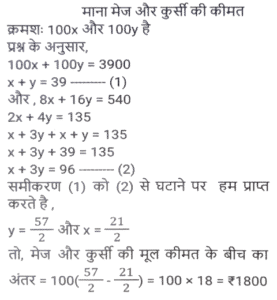 माना मेज और कुर्सी की कीमत
क्रमशः 100x और 100y है
प्रश्न के अनुसार,
100x + 100y = 3900
x + y = 39 --------- (1)
और , 8x + 16y = 540
2x + 4y = 135
x + 3y + x + y = 135
x + 3y + 39 = 135
x + 3y = 96 --------- (2)
समीकरण (1) को (2) से घटाने पर हम प्राप्त
करते है ,
y = 57/2 और x = 21/2
तो, मेज और कुर्सी की मूल कीमत के बीच का
अंतर = 100(57/2 - 21/2) = 100 × 18 = ₹1800